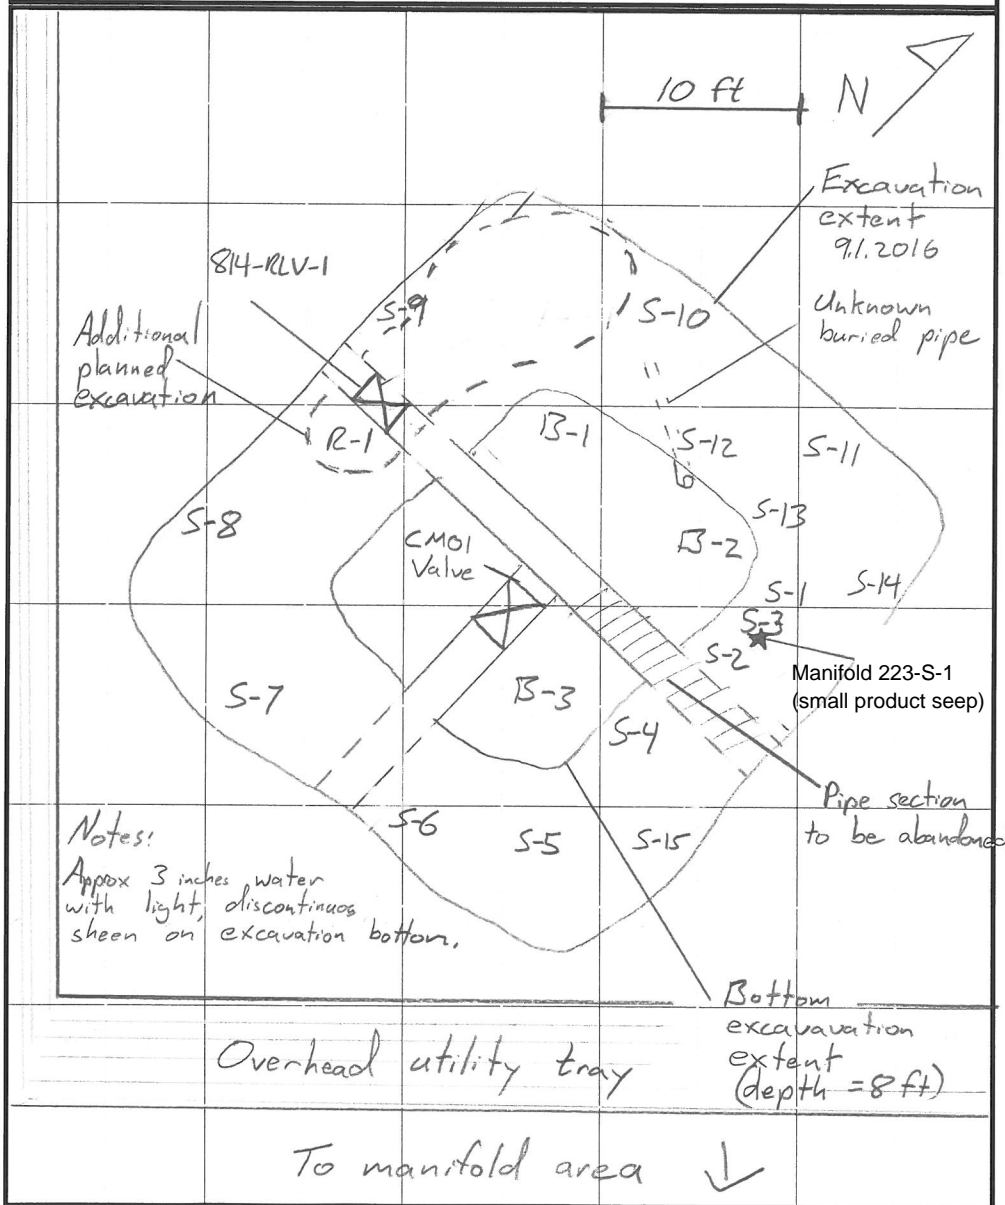 10 ft
N
Excavation
extent
9.1.2016
814-RLV-1
S-9
S-10
Unknown
buried pipe
Additional
planned
excavation
R-1
B-1
S-12
S-11
S-8
S-13
CMOI
Valve
B-2
S-1
S-14
S-3
S-2
Manifold 223-S-1
(small product seep)
S-7
B-3
S-4
Pipe section
to be abandoned
S-6
S-5
S-15
Notes:
Approx 3 inches water
with light, discontinuos
sheen on excavation bottom.
Bottom
excavavation
extent
(depth = 8 ft)
Overhead utility tray
To manifold area